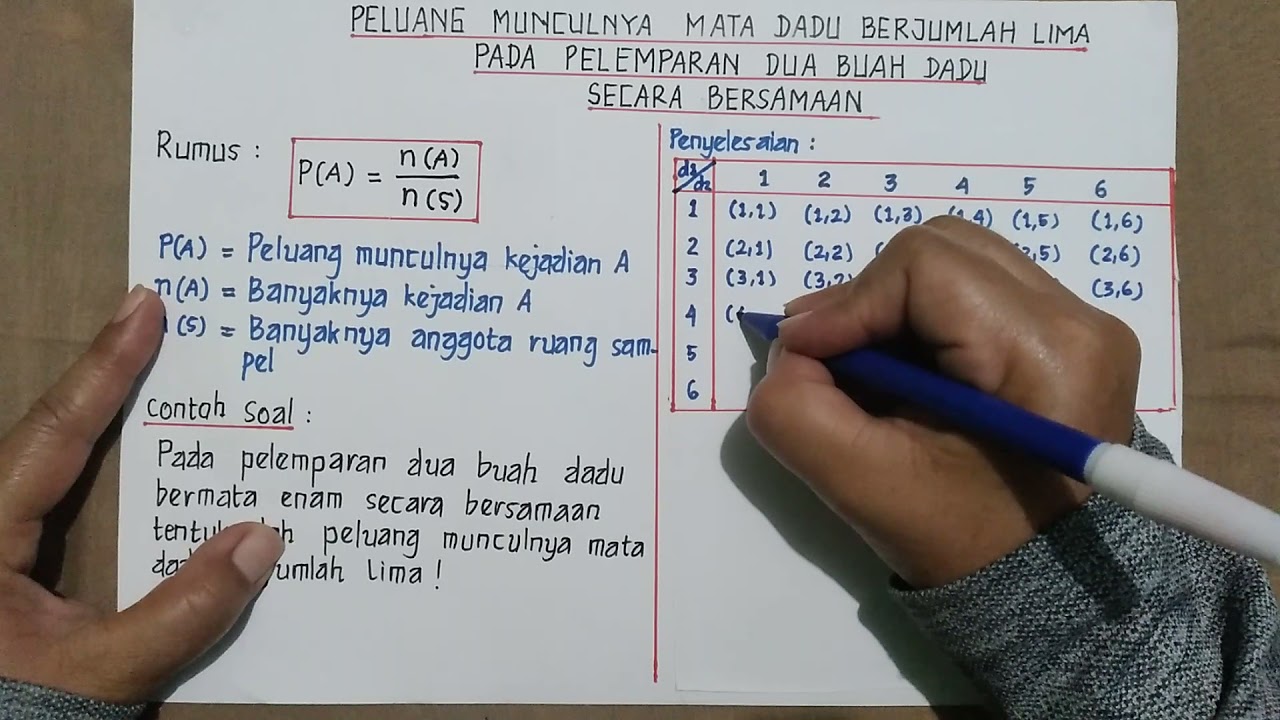 PELUANG MUNCULNYA MATA DADU BERJUMLAH LIMA
PADA PELEMPARAN DUA BUAH DADU
SECARA BERSAMAAN
Rumus :
P(A) = n(A) / n(S)
P(A) = Peluang munculnya kejadian A
n(A) = Banyaknya kejadian A
(S) = Banyaknya anggota ruang sam-
pel
Contoh Soal :
Pada pelemparan dua buah dadu
bermata enam secara bersamaan
peluang munculnya mata
lima !
Penyelesaian :
d1/d2 1 2 3 4 5 6
1 (1,1) (1,2) (1,3) (1,4) (1,5) (1,6)
2 (2,1) (2,2) (2,6)
3 (3,1) (3,6)
4
5
6